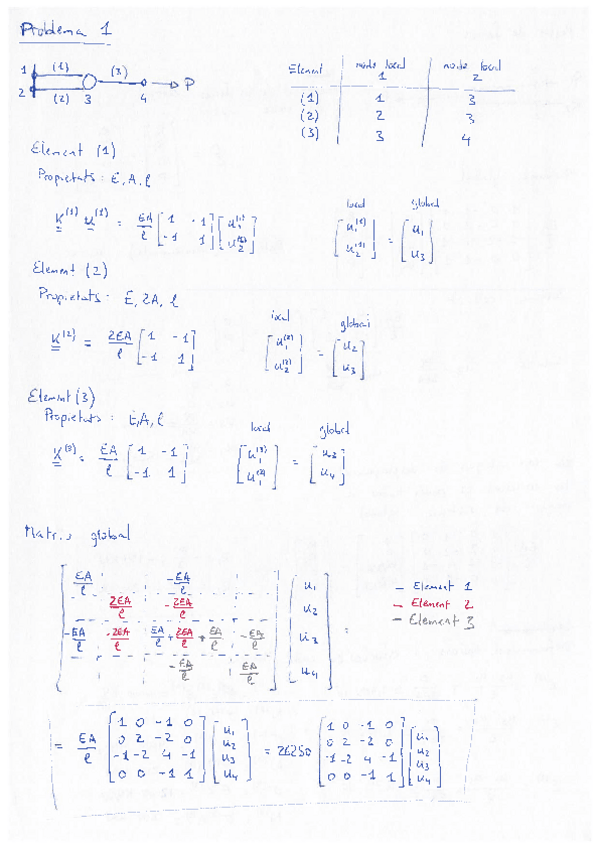 Problema 1
1 (1) (3) P
2 (2) 3 4
Element | node local 1 | node local 2
(1) 1 3
(2) 2 3
(3) 3 4
Element (1)
Propietats: E, A, l
K^(1) u^(1) = EA/l [1 -1; -1 1] [u_1^(1); u_2^(1)]
local global
[u_1^(1); u_2^(1)] = [u_1; u_3]
Element (2)
Propietats: E, 2A, l
K^(2) = 2EA/l [1 -1; -1 1]
local global
[u_1^(2); u_2^(2)] = [u_2; u_3]
Element (3)
Propietats: E, A, l
K^(3) = EA/l [1 -1; -1 1]
local global
[u_1^(3); u_1^(3)] = [u_3; u_4]
Matriu global
EA/l -EA/l u_1
2EA/l -2EA/l u_2
-EA/l -2EA/l EA/l + 2EA/l + EA/l -EA/l u_3 =
-EA/l EA/l u_4
– Element 1
– Element 2
– Element 3
= EA/l [1 0 -1 0; 0 2 -2 0; -1 -2 4 -1; 0 0 -1 1] [u_1; u_2; u_3; u_4] = 26250 [1 0 -1 0; 0 2 -2 0; -1 -2 4 -1; 0 0 -1 1] [u_1; u_2; u_3; u_4]